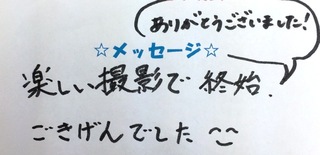 ありがとうございました!
☆メッセージ☆
楽しい撮影で 終始.
ごきげんでした